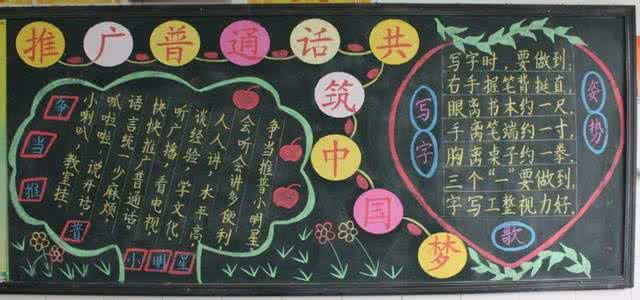 推广普通话共筑中国梦
争当推普小明星
小喇叭，教室挂，
叭啦啦，说开话
语言统一少麻烦
快快推广普通话。
听广播，看电视
谈经验，学文化
人人讲，水平高，
会听会讲多便利
争当推普小明星
写字姿势歌
写字时，要做到；
右手握笔背挺直，
眼离书本约一尺，
手离笔端约一寸，
胸离桌子约一拳，
三个“一”要做到，
字写工整视力好。